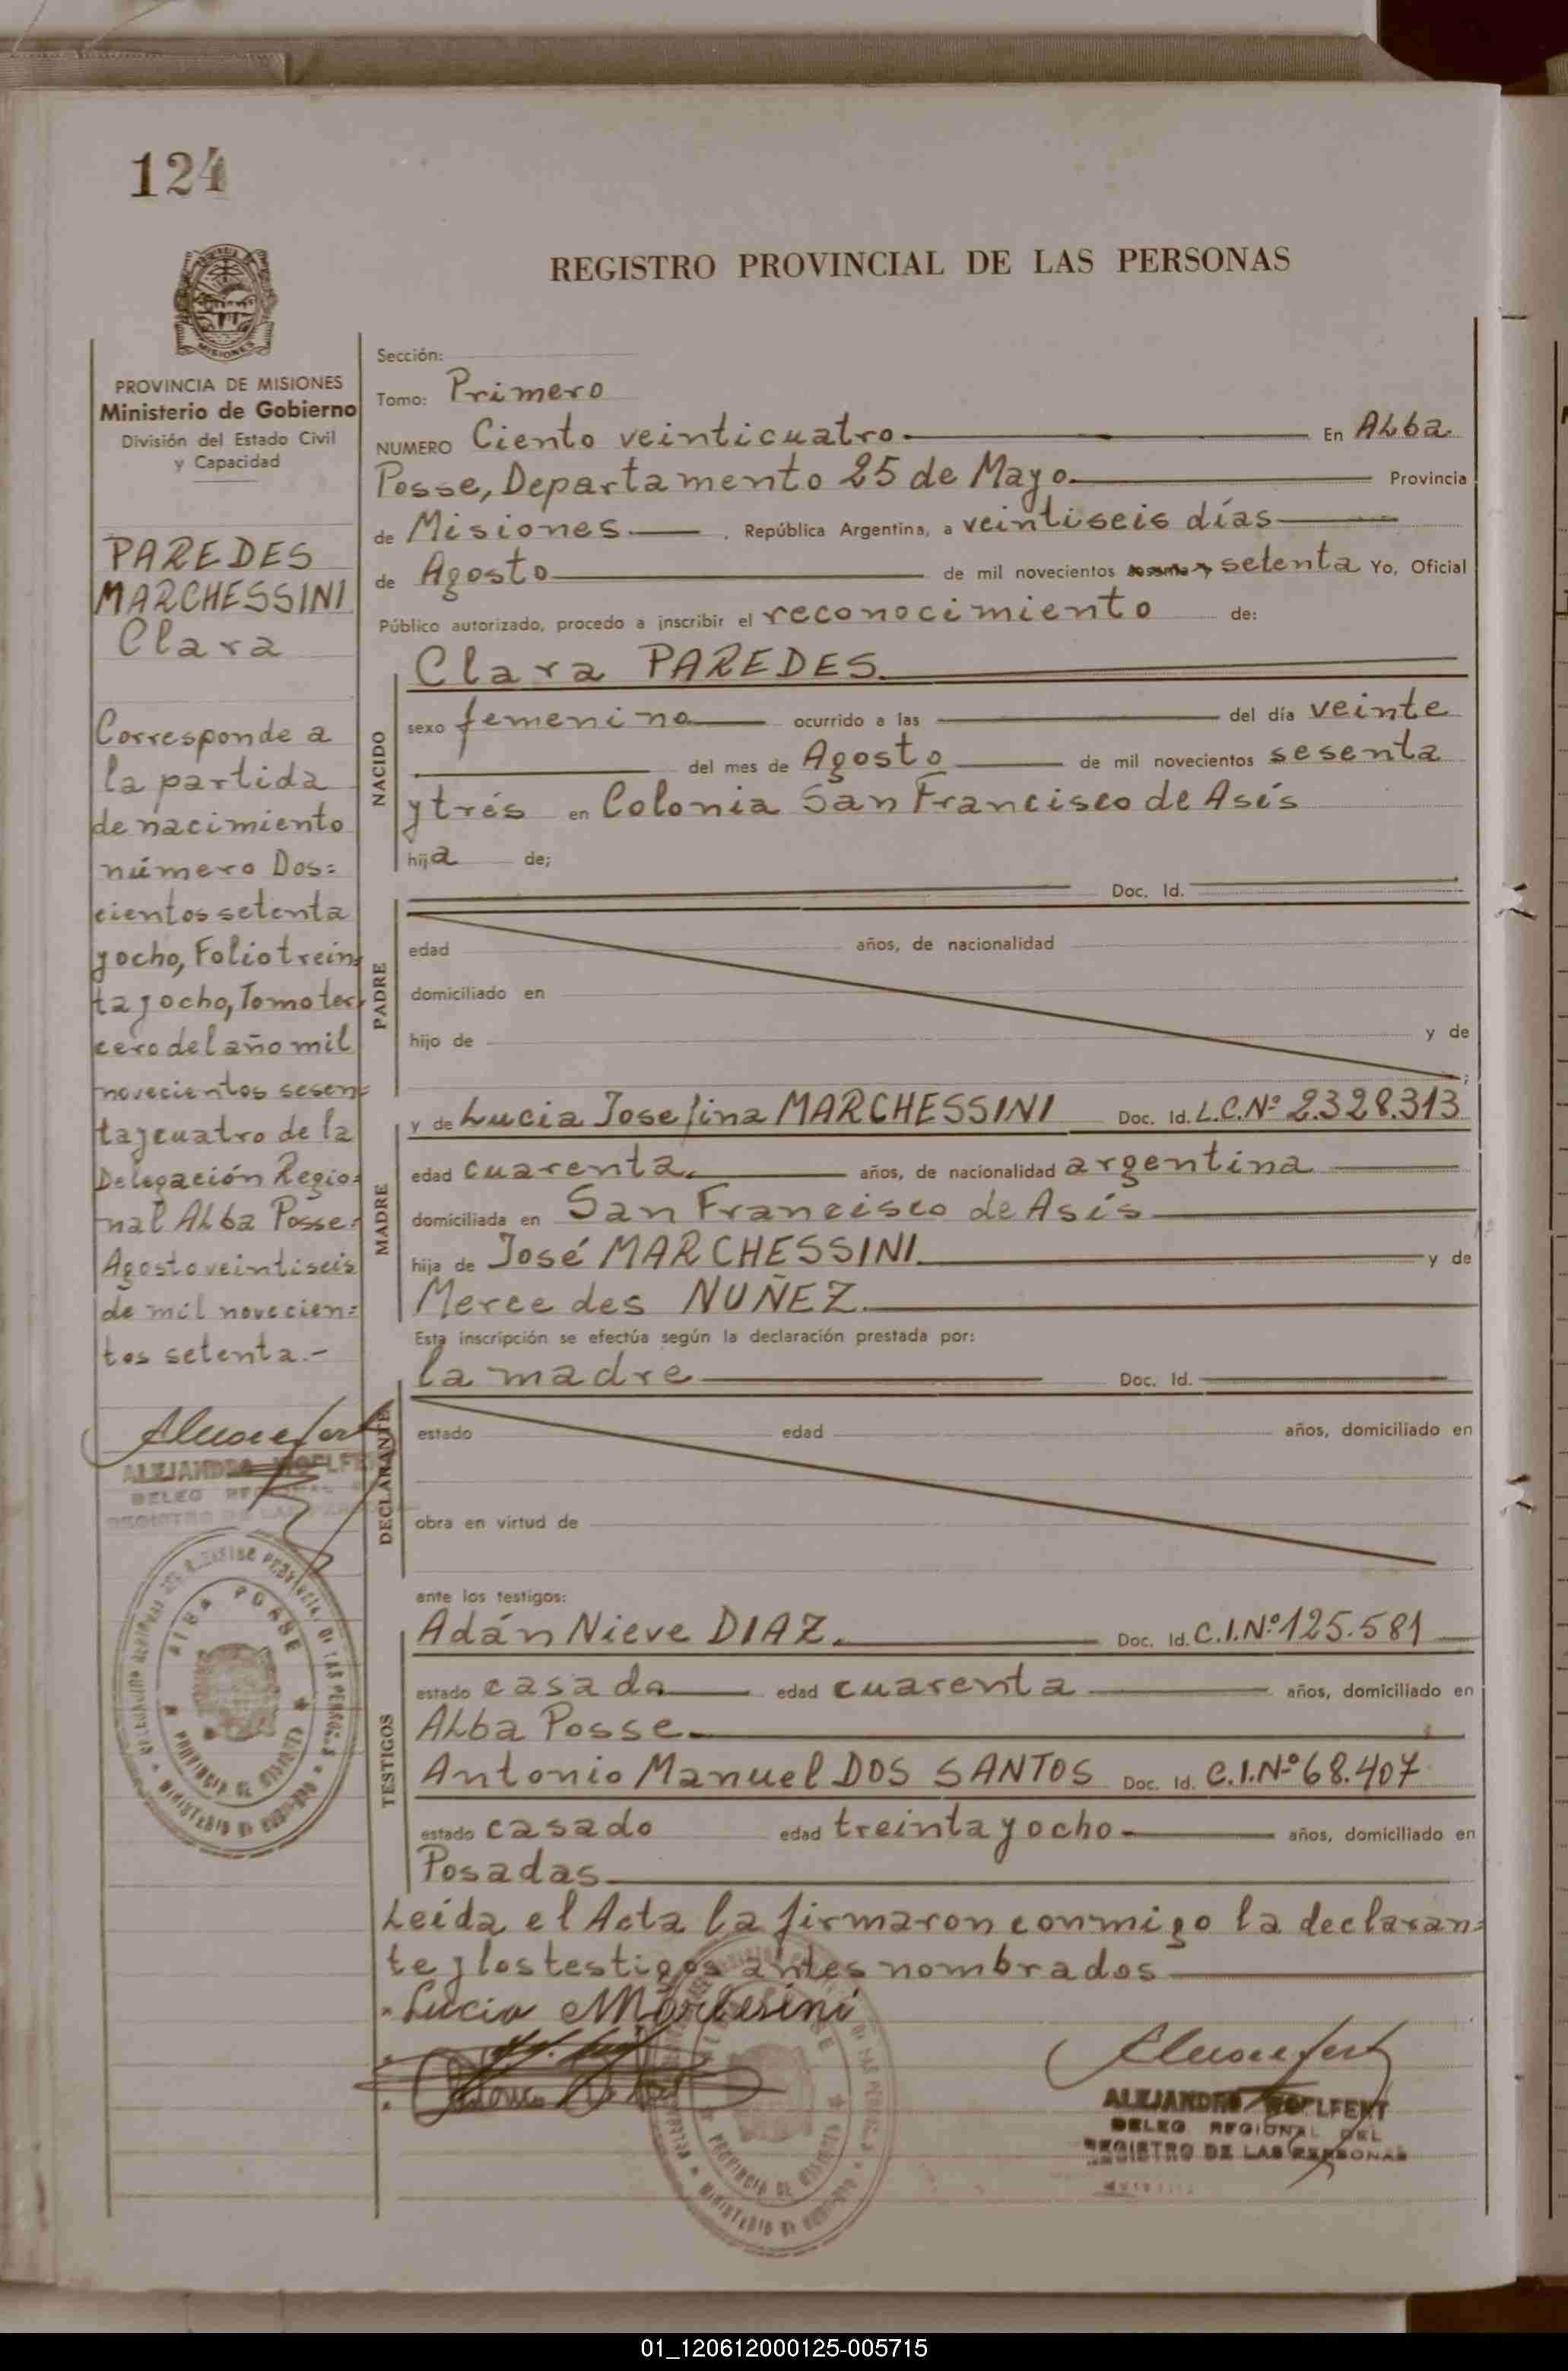 124
REGISTRO PROVINCIAL DE LAS PERSONAS
MISIONES
PROVINCIA DE MISIONES
Ministerio de Gobierno
División del Estado Civil
y Capacidad
PAREDES
MARCHESSINI
Clara
Corresponde a
la partida
de nacimiento
número Dos=
cientos setenta
y ocho, Folio trein=
ta y ocho, Tomo ter=
cero del año mil
novecientos sesen=
ta y cuatro de la
Delegación Regio=
nal Alba Posse.
Agosto veintiseis
de mil novecien=
tos setenta.-
ALEJANDRO WOLFERT
DELEG REGIONAL
REGISTRO DE LAS PERSONAS
ALBA POSSE
PROVINCIA DE MISIONES
MINISTERIO DE GOBIERNO
Sección:
Tomo: Primero
NUMERO Ciento veinticuatro. En Alba
Posse, Departamento 25 de Mayo. Provincia
de Misiones. , República Argentina, a veintiseis días
de Agosto de mil novecientos setenta Yo, Oficial
Público autorizado, procedo a inscribir el reconocimiento de:
Clara PAREDES.
NACIDO
sexo femenino ocurrido a las del día veinte
del mes de Agosto de mil novecientos sesenta
y trés en Colonia San Francisco de Asís
hija de;
Doc. Id.
PADRE
edad años, de nacionalidad
domiciliado en
hijo de y de
;
y de Lucia Josefina MARCHESSINI Doc. Id. L.C.Nº 2.328.313
MADRE
edad cuarenta. años, de nacionalidad argentina
domiciliada en San Francisco de Asís
hija de José MARCHESSINI. y de
Mercedes NUÑEZ.
Esta inscripción se efectúa según la declaración prestada por:
la madre Doc. Id.
DECLARANTE
estado edad años, domiciliado en
obra en virtud de
ante los testigos:
TESTIGOS
Adán Nieve DIAZ. Doc. Id. C.I.Nº 125.581
estado casado edad cuarenta años, domiciliado en
Alba Posse.
Antonio Manuel DOS SANTOS Doc. Id. C.I.Nº 68.407
estado casado edad treinta y ocho años, domiciliado en
Posadas.
Leída el Acta la firmaron conmigo la declaran=
te y los testigos antes nombrados
Lucia
ALEJANDRO WOLFERT
DELEG REGIONAL DEL
REGISTRO DE LAS PERSONAS
PROVINCIA DE MISIONES
MINISTERIO DE GOBIERNO
01_120612000125-005715